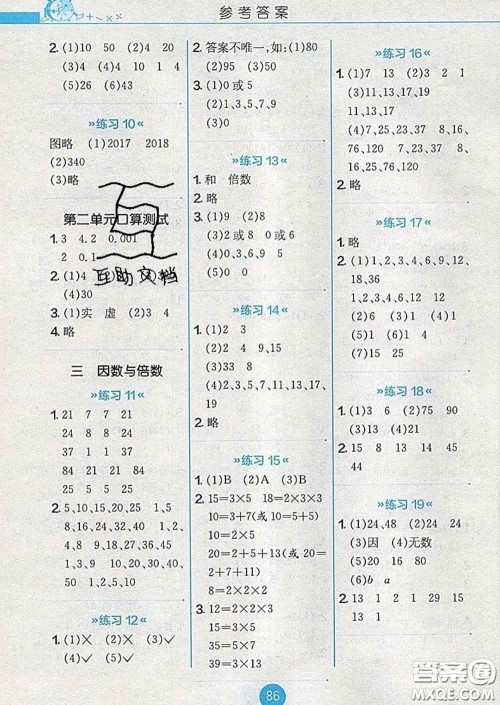 参考答案
2. (1)10 50 (2)4 20
(3)4 (4)4 10 1 4
(5)26 (6)43
»练习10«
图略 (1)2017 2018
(2)340
(3)略
第二单元口算测试
1. 3 4.2 0.001
2 0.1
2. (1)4
(4)30
3. (1)实 虚 (2)3 4
4. 略
互助文档
三 因数与倍数
»练习11«
1. 21 7 7 21
24 8 8 24
37 1 1 37
53 1 1 53
2. 5,10,15,20,25 1,5
8,16,24,32,40 1,2,4,8
9,18,27,36,45
1,3,9 10,20,30,40,50
1,2,5,10
»练习12«
1. (1)× (2)× (3)✓
(4)✓ (5)✓
2. 答案不唯一,如: (1)80
(2)95 (3)50
3. (1)0或5
(2)1、3、5、7、9
(3)0
»练习13«
1. 和 倍数
2. 略
3. (1)9 (2)8
(3)2或8 0或6
(4)2或5或8
(5)0 0
»练习14«
1. (1)2 3
(2)4 9,15
(3)33 8
(4)2、3、5、7、11、13、17、
19
2. 略
»练习15«
1. (1)B (2)A
2. 15=3×5 18=2×3×3
10=3+7(或10=5+5)
20=2+5+13
20=2+7+11(或
20=2+5+13)
8=2×2×2
3. 12=2×2×3
35=5×7
39=3×13
»练习16«
1. (1)7 13 (2)3,21
(3)11,13,17,19
11,13,17
(4)7,23,37 8,16,
76,120 7,23,37 8,
16,25,76,120
2. 略
»练习17«
1. 略
2. (1)1,2,3,4,6,9,12,
18,36
1,2,3,4,6,12
(2)1,2,4,8
(3)1 (4)6 (5)4
(6)1,2,5,10
(7)15
»练习18«
1. (1)3 6 (2)75 90
(3)8 (4)1
2. 15 8 13 14 44
38
»练习19«
1. (1)24,48 (2)24
(3)因 (4)无数
(5)20 16 80
(6)b a
2. 13 1 2 1 29 15
34 1 13
86
答案圈
MXQE.COM